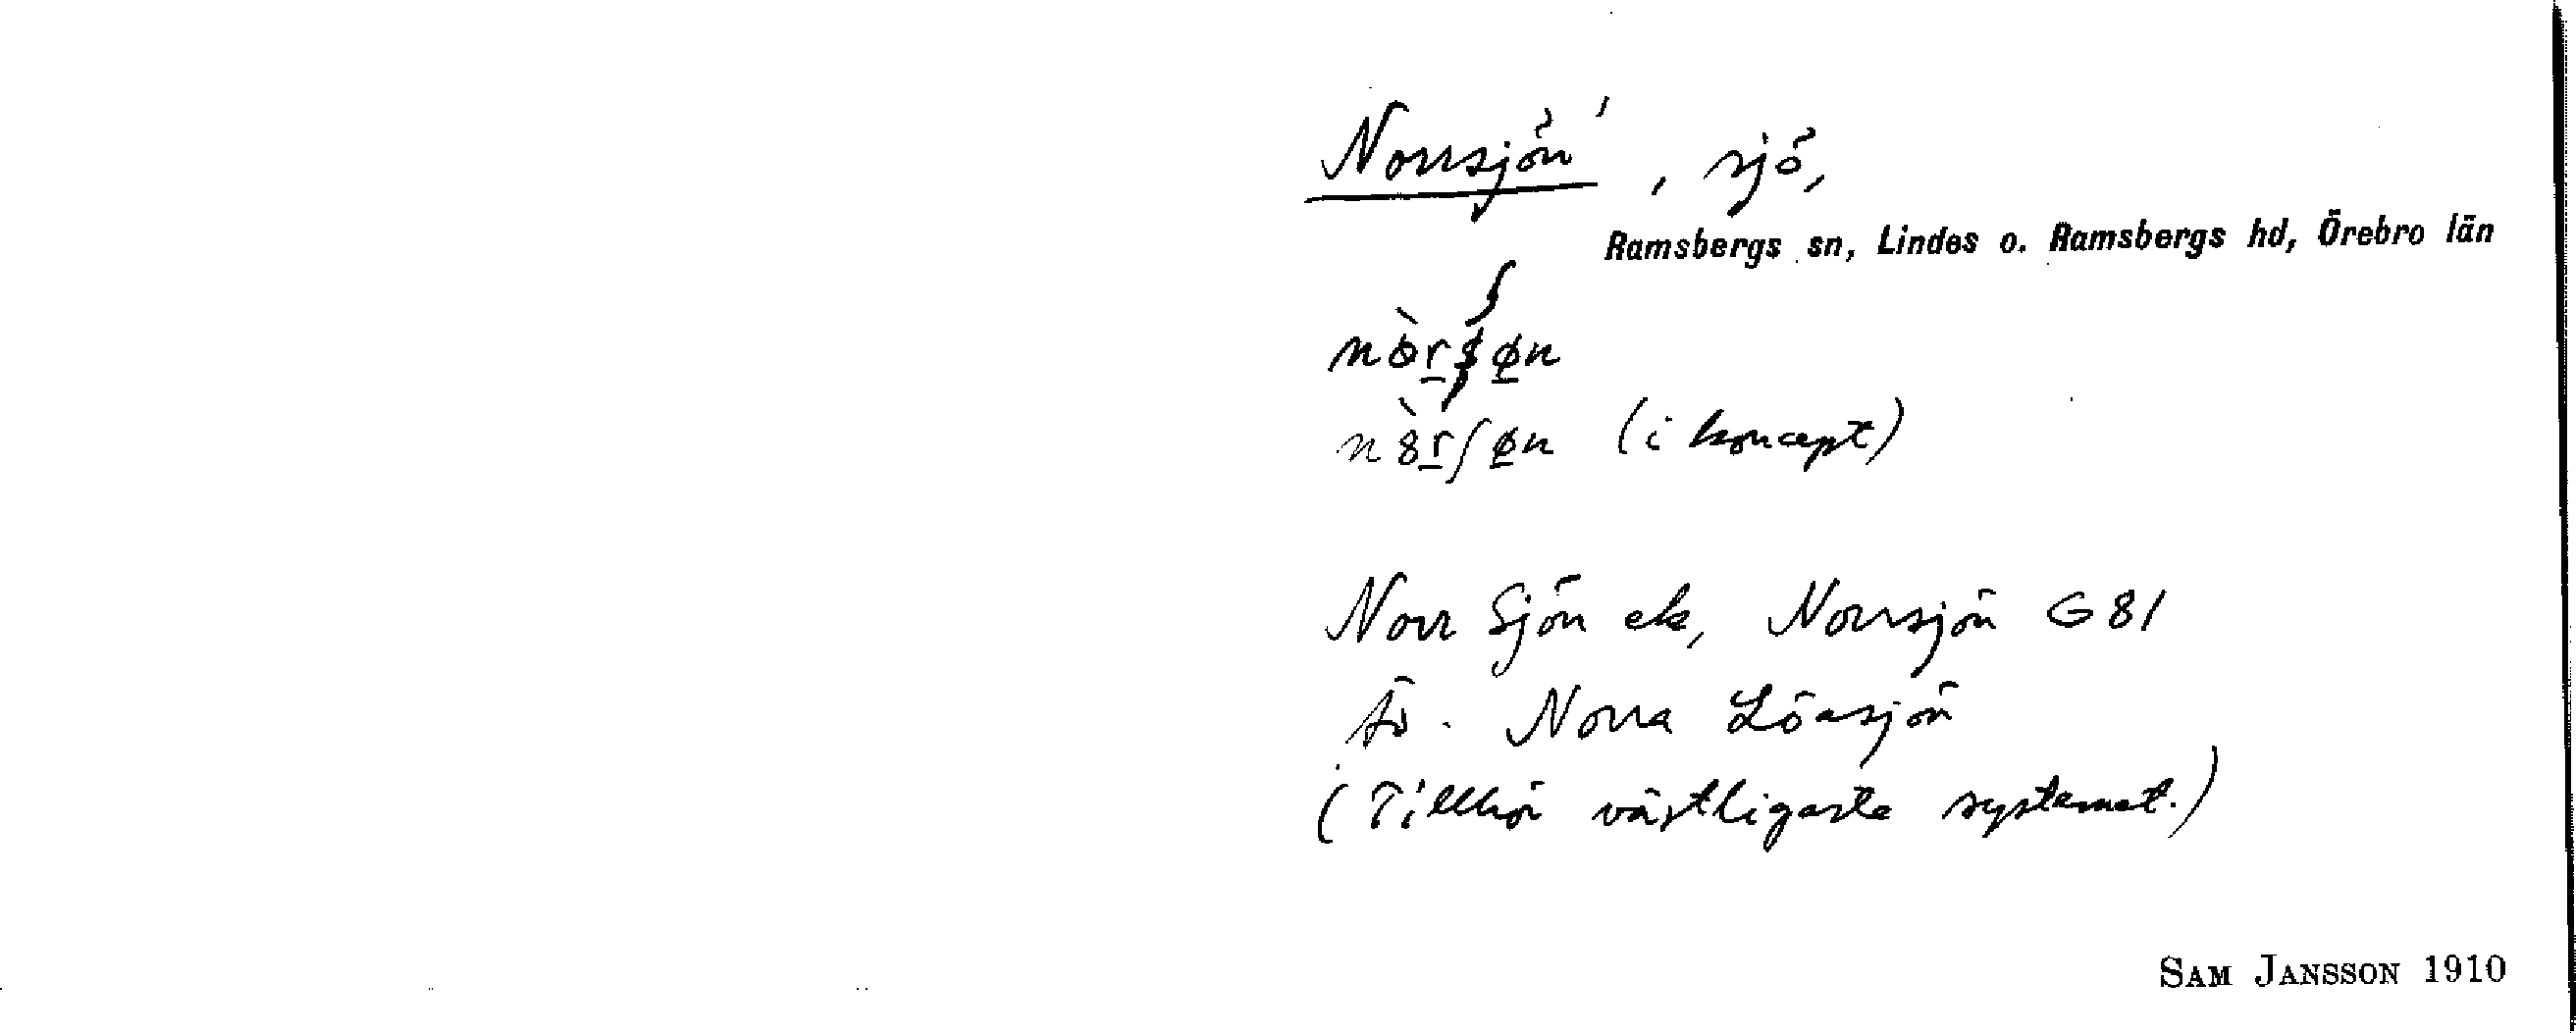 Norrsjön ', sjö,
Ramsbergs sn, Lindes o. Ramsbergs hd, Örebro län
ʃ
nòrʃøn
n8̀rʃøn (i koncept)
Norr Sjön ek, Norrsjön G 81
Äv. Norra Löasjön
(Tillhör västligaste systemet.)
SAM JANSSON 1910